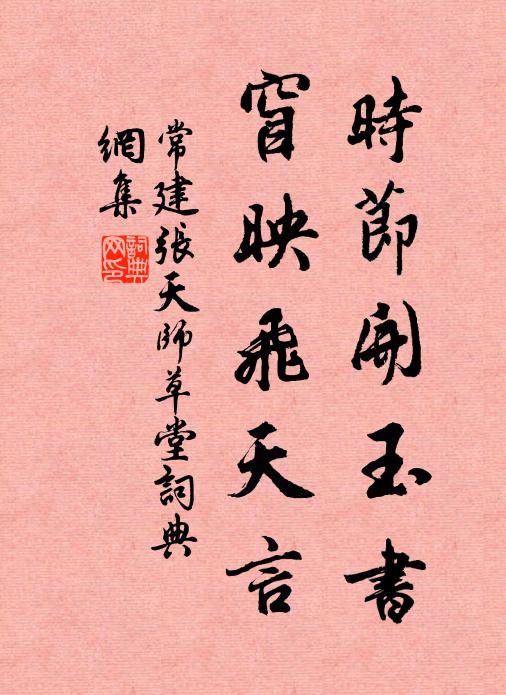 時節開玉書
窅映飛天言
常建張天師草堂詞典
網集
詞典
网印